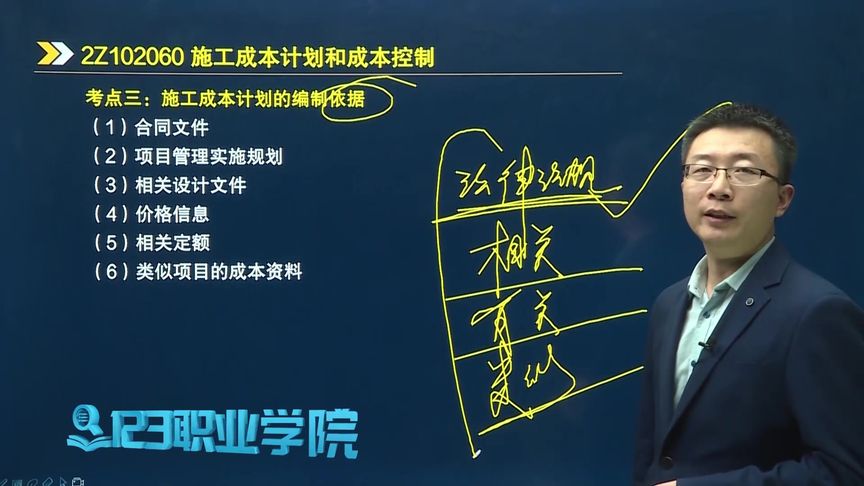 2Z102060 施工成本计划和成本控制
考点三：施工成本计划的编制依据
（1）合同文件
（2）项目管理实施规划
（3）相关设计文件
（4）价格信息
（5）相关定额
（6）类似项目的成本资料
法律法规
相关
有关
类似
123职业学院